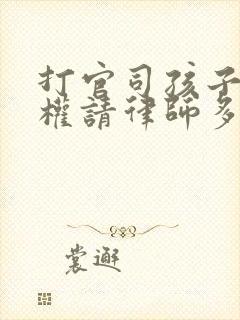 打官司孩子
權請律師多
裳邂